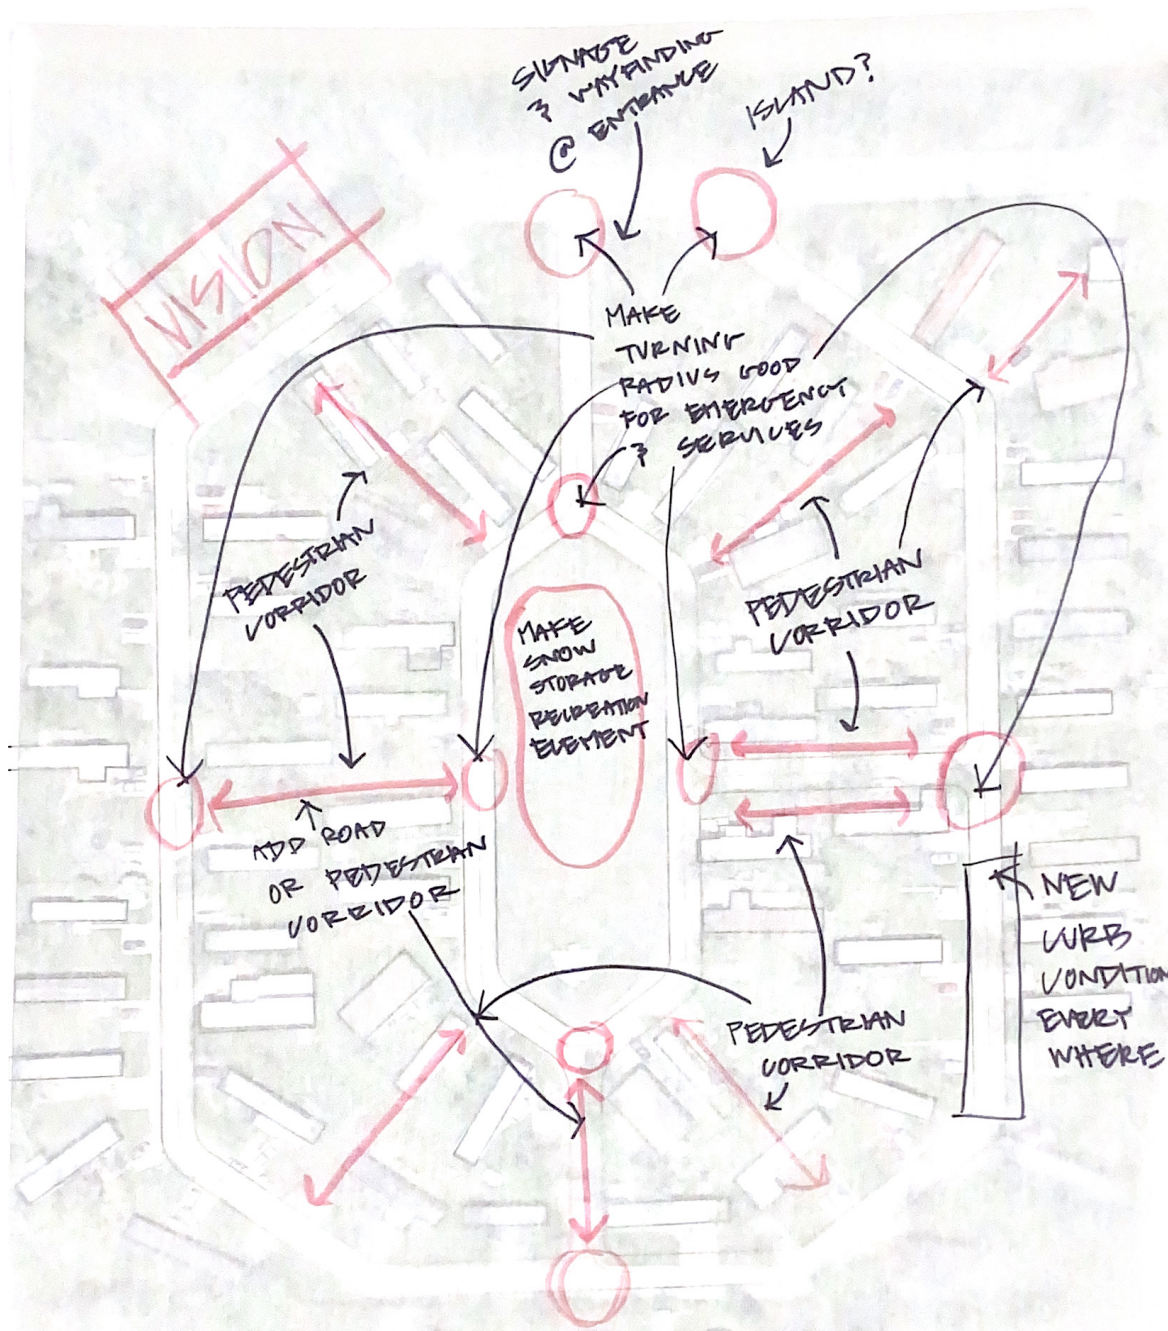 SIGNAGE
& WAYFINDING
@ ENTRANCE
ISLAND?
VISION
MAKE
TURNING
RADIUS GOOD
FOR EMERGENCY
& SERVICES
PEDESTRIAN
CORRIDOR
PEDESTRIAN
CORRIDOR
MAKE
SNOW
STORAGE
RECREATION
ELEMENT
ADD ROAD
OR PEDESTRIAN
CORRIDOR
NEW
CURB
CONDITION
EVERY
WHERE
PEDESTRIAN
CORRIDOR